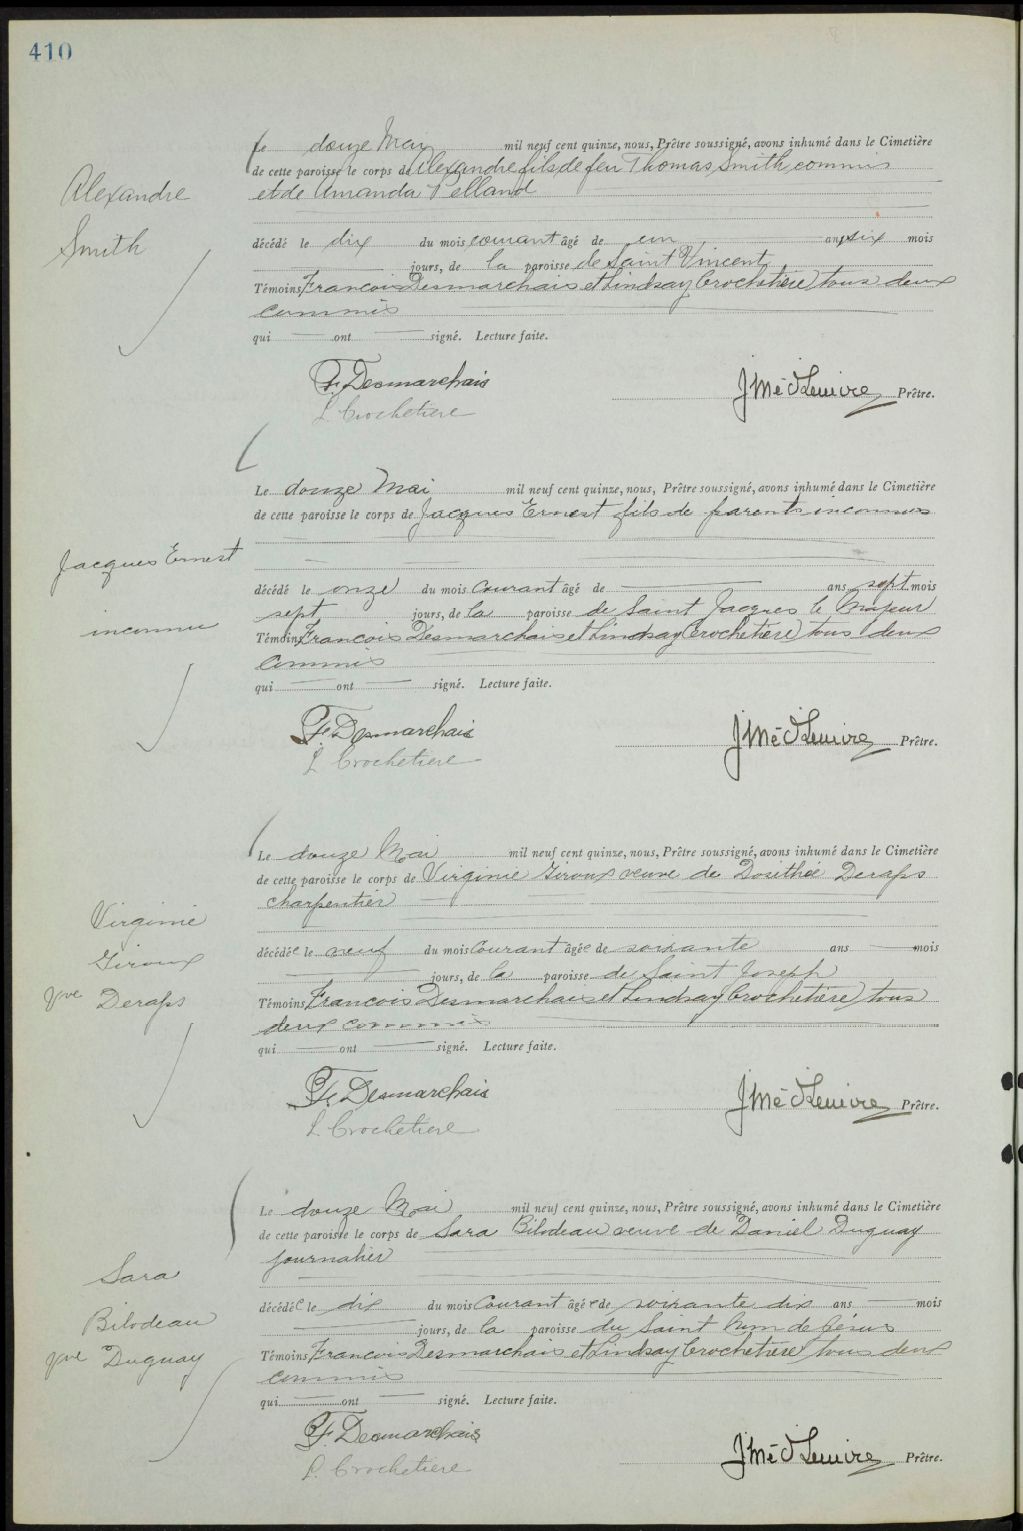 410
Le douze Mai mil neuf cent quinze, nous, Prêtre soussigné, avons inhumé dans le Cimetière
de cette paroisse le corps de Alexandre fils de feu Thomas Smith commis
et de Amanda Pelland
Alexandre
Smith
décédé le dix du mois courant âgé de un an six mois
jours, de la paroisse de Saint Vincent
Témoins Francois Desmarchais et Lindsay Crochetière tous deux
commis
qui ont signé. Lecture faite.
F. Desmarchais
L. Crochetiere
Prêtre.
Le douze Mai mil neuf cent quinze, nous, Prêtre soussigné, avons inhumé dans le Cimetière
de cette paroisse le corps de Jacques Ernest fils de parents inconnus
Jacques Ernest
inconnu
décédé le onze du mois courant âgé de ans sept mois
sept jours, de la paroisse de Saint Jacques le Majeur
Témoins Francois Desmarchais et Lindsay Crochetière tous deux
commis
qui ont signé. Lecture faite.
F. Desmarchais
L. Crochetiere
Prêtre.
Le douze Mai mil neuf cent quinze, nous, Prêtre soussigné, avons inhumé dans le Cimetière
de cette paroisse le corps de Virginie Giroux veuve de Dosithée Deraps
charpentier
Virginie
Giroux
Vve Deraps
décédée le neuf du mois courant âgée de soixante ans mois
jours, de la paroisse de Saint Joseph
Témoins Francois Desmarchais et Lindsay Crochetière tous
deux commis
qui ont signé. Lecture faite.
F. Desmarchais
L. Crochetiere
Prêtre.
Le douze Mai mil neuf cent quinze, nous, Prêtre soussigné, avons inhumé dans le Cimetière
de cette paroisse le corps de Sara Bilodeau veuve de Daniel Duguay
journalier
Sara
Bilodeau
Vve Duguay
décédée le dix du mois courant âgée de soixante dix ans mois
jours, de la paroisse du Saint Nom de Jésus
Témoins Francois Desmarchais et Lindsay Crochetière tous deux
commis
qui ont signé. Lecture faite.
F. Desmarchais
L. Crochetiere
Prêtre.